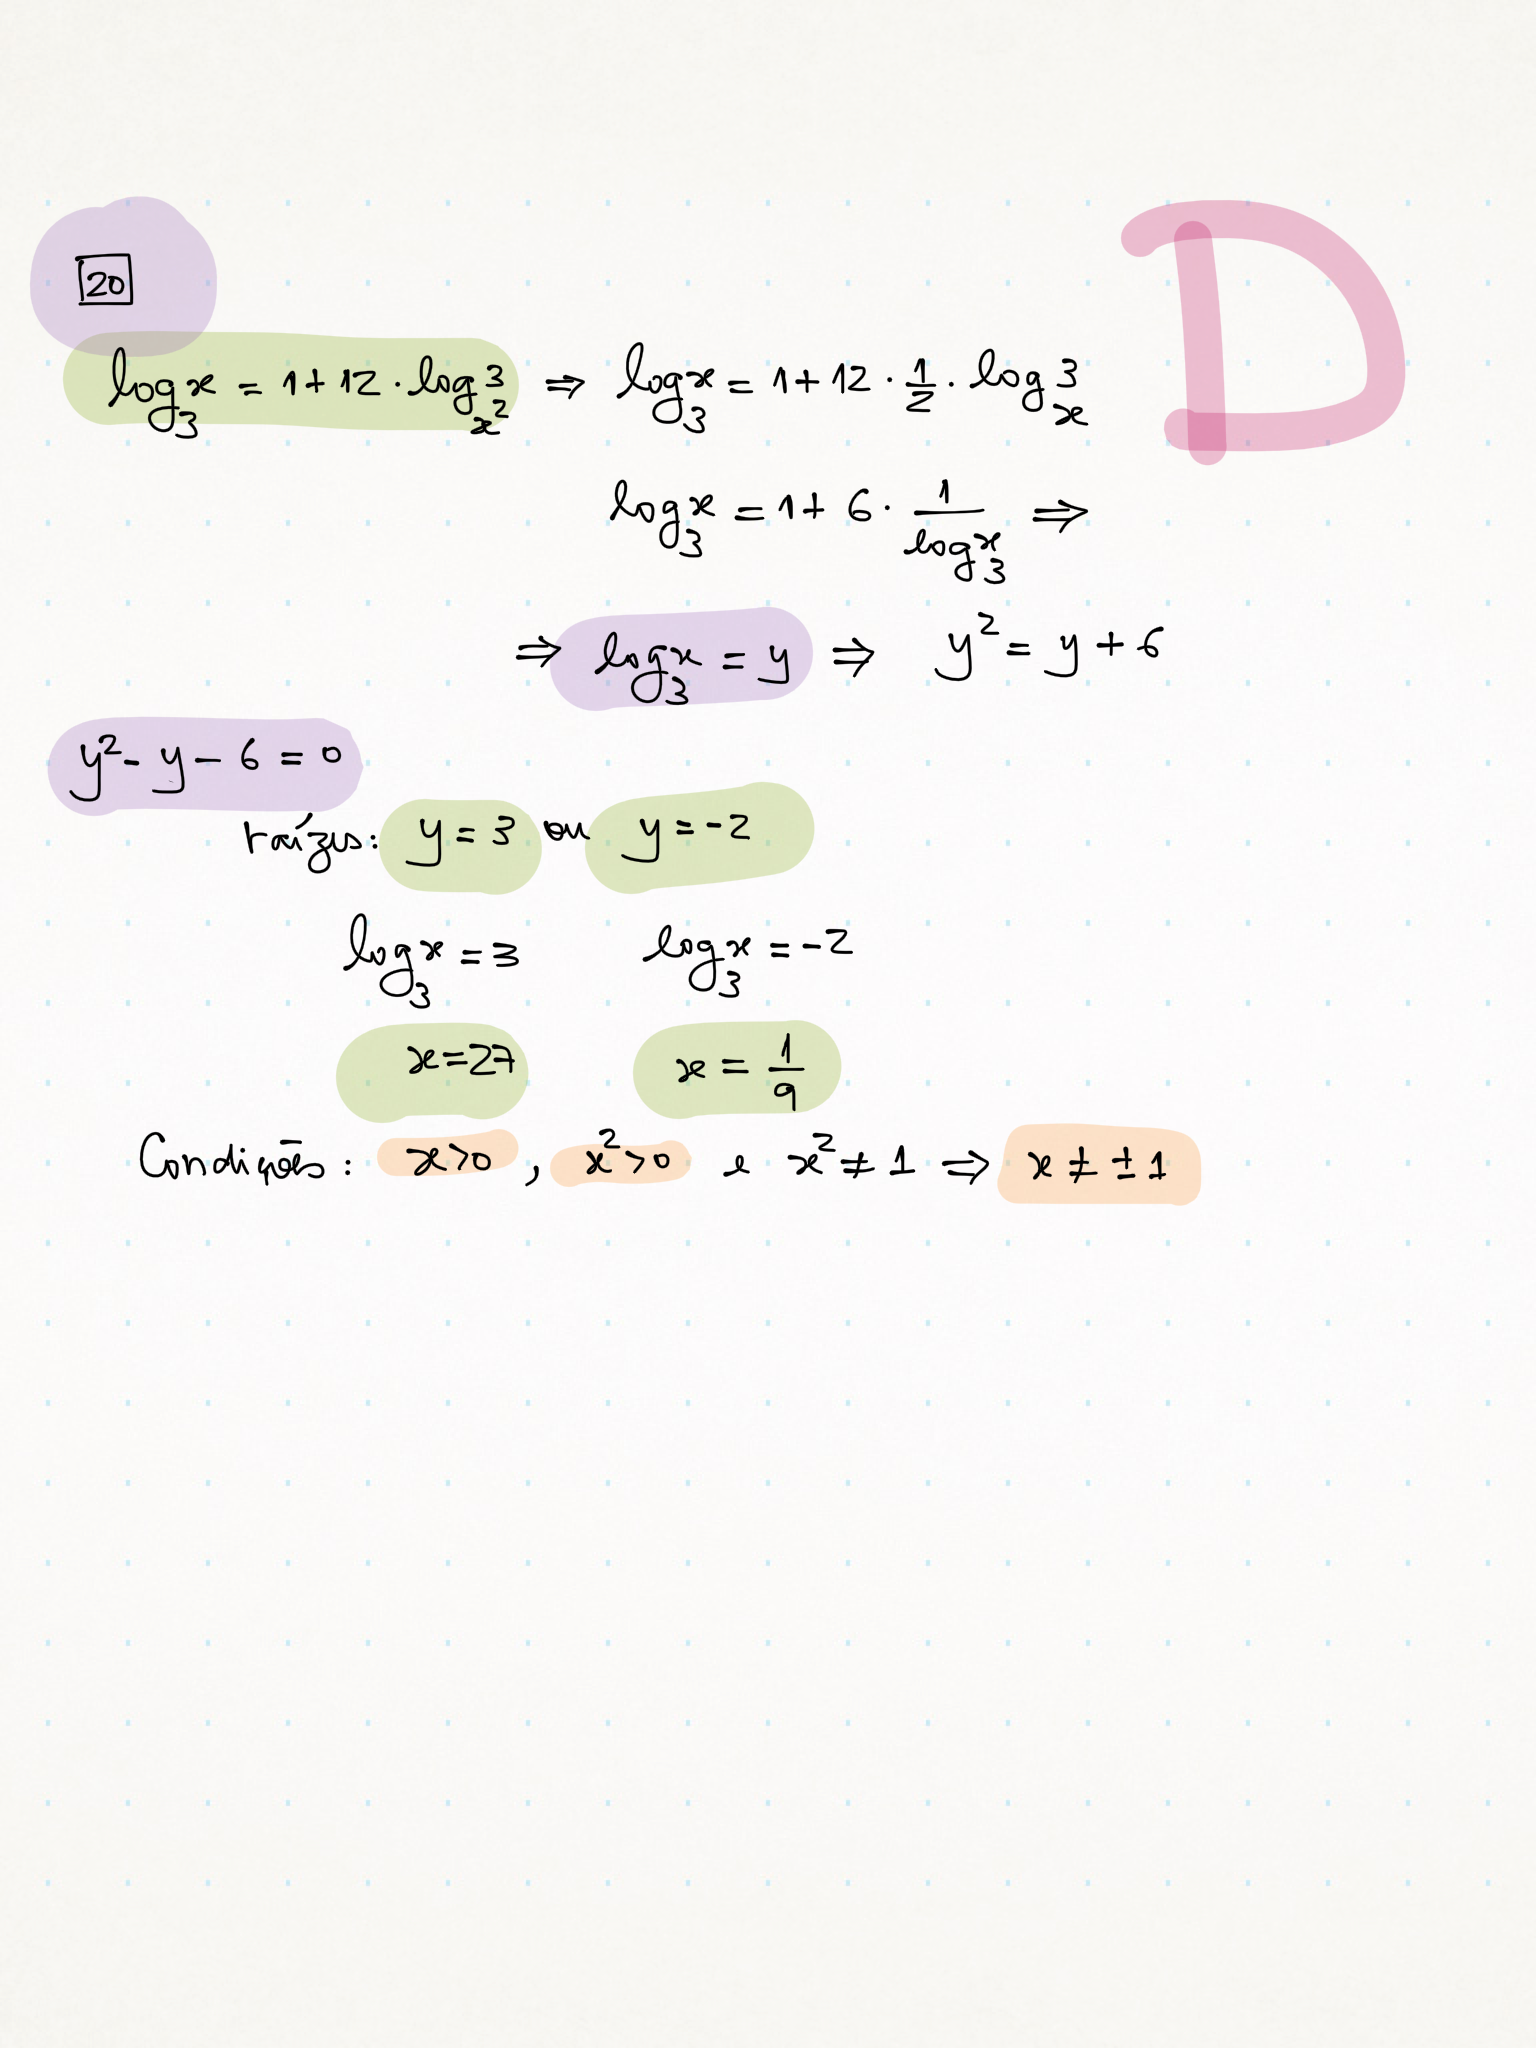 20
D
log₃x = 1 + 12 · log_x² 3 ⇒ log₃x = 1 + 12 · 1/2 · log_x 3
log₃x = 1 + 6 · 1/log₃x ⇒
⇒ log₃x = y ⇒ y² = y + 6
y² - y - 6 = 0
raízes: y = 3 ou y = -2
log₃x = 3 log₃x = -2
x = 27 x = 1/9
Condições: x > 0 , x² > 0 e x² ≠ 1 ⇒ x ≠ ± 1